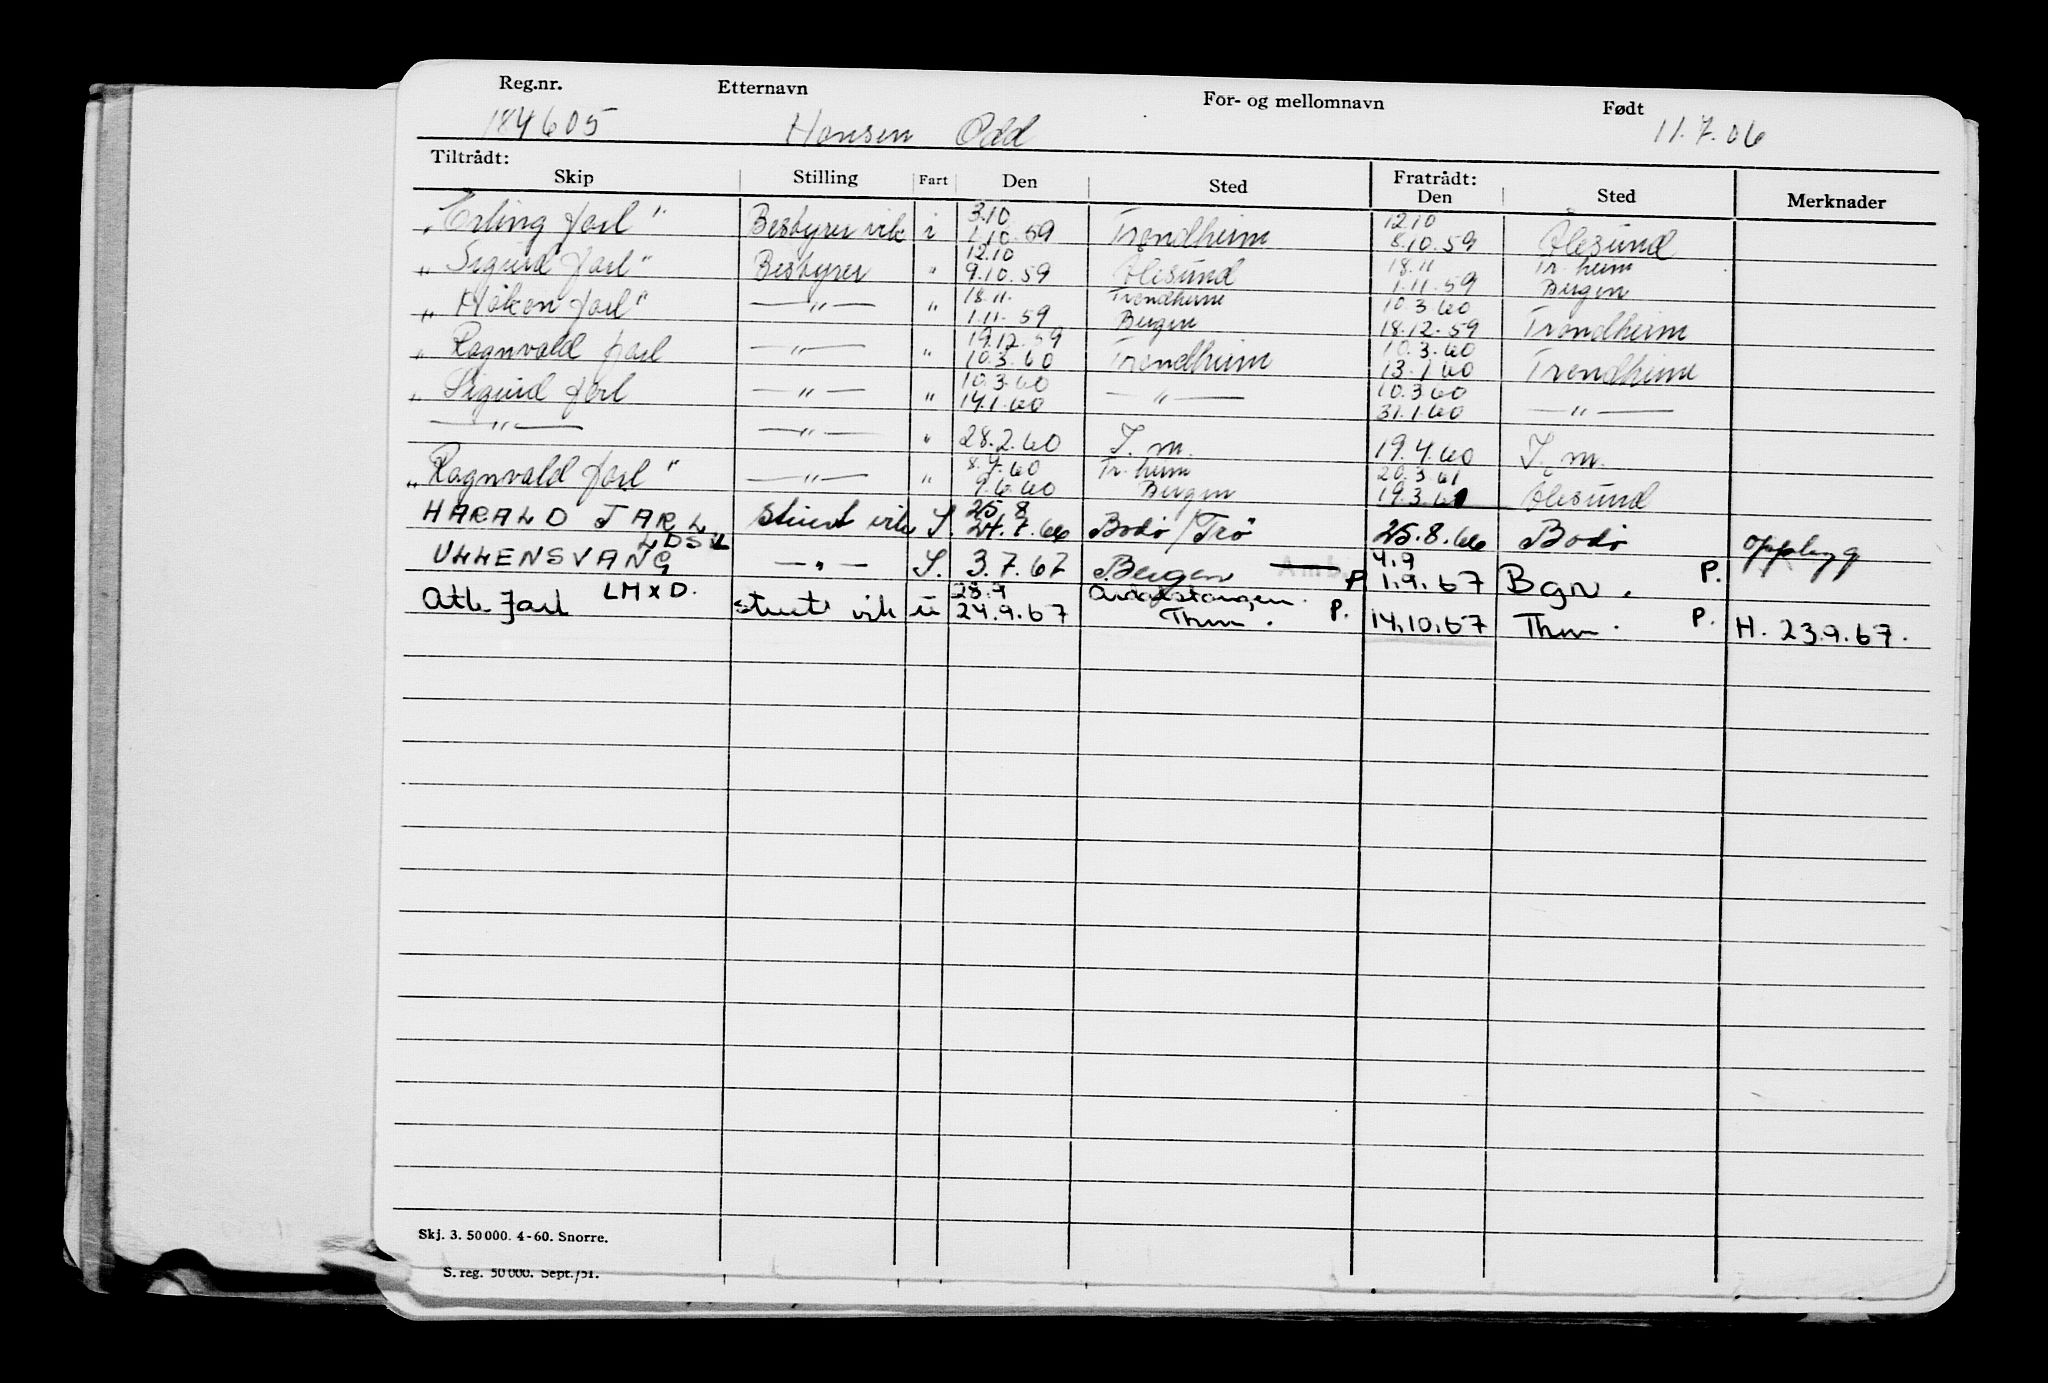 Reg.nr. Etternavn For- og mellomnavn Født
184605 Hansen Odd 11.7.06
Tiltrådt: Fratrådt:
Skip Stilling Fart Den Sted Den Sted Merknader
3.10 12.10
„Erling Jarl" Bestyrer vik i 1.10.59 Trondheim 8.10.59 Ålesund
12.10 18.11 Tr.heim
„Sigurd Jarl" Bestyrer " 9.10.59 Ålesund 1.11.59 Bergen
18.11. Trondheim 10.3.60
„Håkon Jarl" — " — " 1.11.59 Bergen 18.12.59 Trondheim
19.12.59 10.3.60
„Ragnvald Jarl — " — " 10.3.60 Trondheim 13.1.60 Trondheim
10.3.60 10.3.60
„Sigurd Jarl — " — " 14.1.60 — " — 31.1.60 — " —
— " — — " — " 28.2.60 T.m. 19.4.60 T.m.
8.7.60 Tr.heim 20.3.61
„Ragnvald Jarl" — " — " 9.6.60 Bergen 19.3.61 Ålesund
25.8
HARALD JARL Stuert vik S. 24.7.66 Bodø/Trø 25.8.66 Bodø opphygg
LDSL 4.9
ULLENSVANG — " — S. 3.7.67 Bergen P. 1.9.67 Bgn. P.
LMXD. 28.9 Årdalstangen.
Atle Jarl stuert vik u 24.9.67 Thm. P. 14.10.67 Thm. P. H. 23.9.67.
Skj. 3. 50 000. 4-60. Snorre.
S. reg. 50 000. Sept./51.